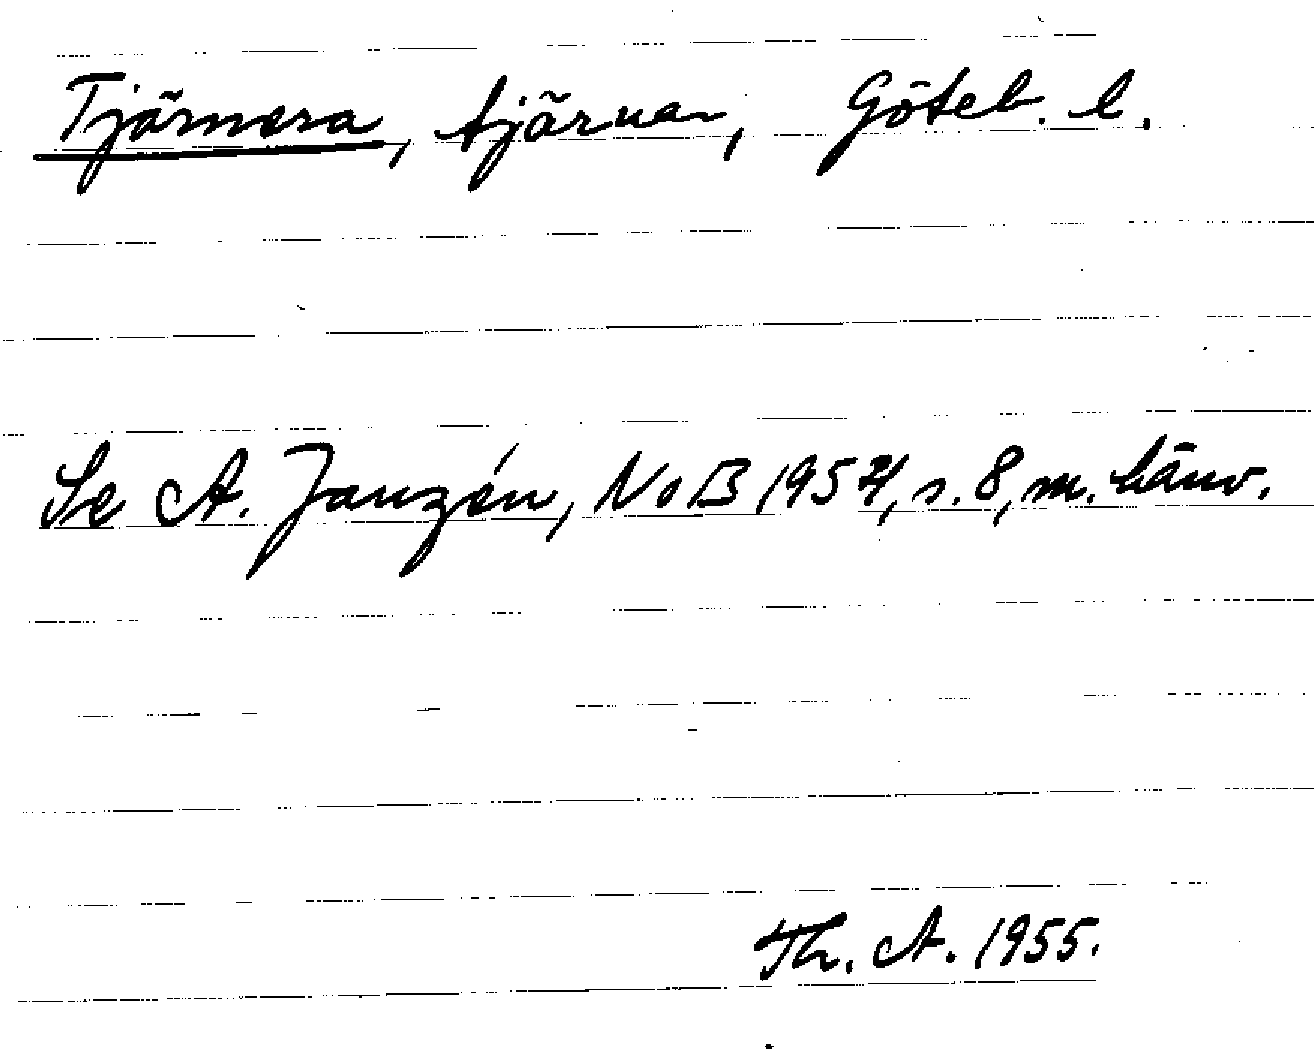 Tjärnara, tjärnar, Göteb. l.
Se A. Janzén, NoB 1954, s. 8, m. hänv.
Th. A. 1955.